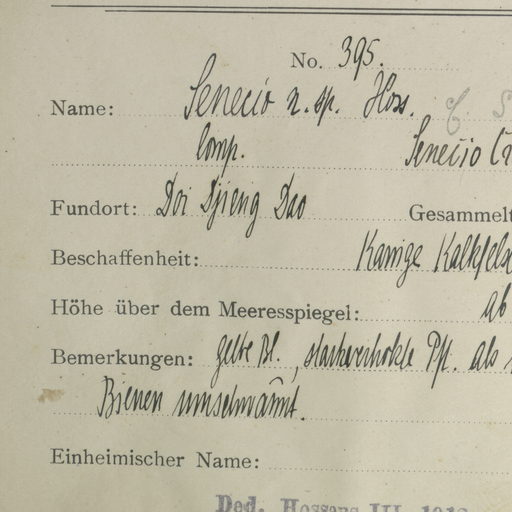 No. 395.
Name: Senecio n. sp. Hoss.
Comp. Senecio Cr
Fundort: Doi Djieng Dao Gesammelt
Beschaffenheit: Karrige Kalkfelse
Höhe über dem Meeresspiegel: ab
Bemerkungen: gelbe Bl., starkverholzte Pfl. als
Bienen umschwärmt.
Einheimischer Name:
Ded. Hosseus III.